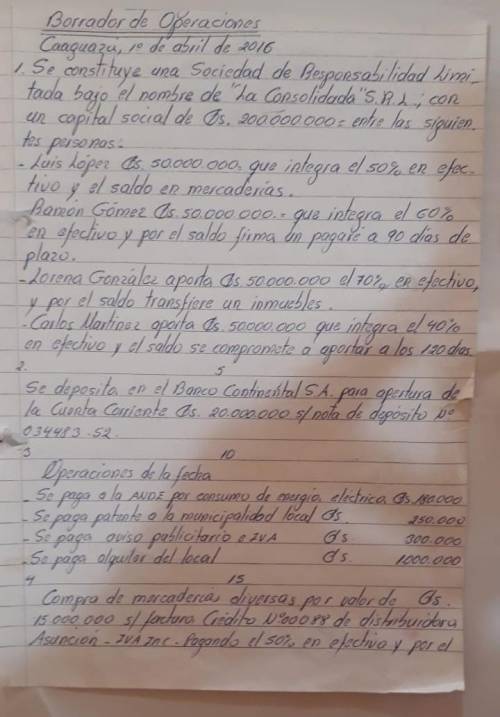 Borrador de Operaciones
Caaguazú, 1º de abril de 2016
1. Se constituye una Sociedad de Responsabilidad Limi-
tada bajo el nombre de "La Consolidada" S.R.L; con
un capital social de Gs. 200.000.000= entre las siguien
tes personas:
- Luis López Gs. 50.000.000= que integra el 50% en efec-
tivo y el saldo en mercaderías.
Ramón Gómez Gs. 50.000.000.= que integra el 60%
en efectivo y por el saldo firma un pagaré a 90 días de
plazo.
- Lorena González aporta Gs 50.000.000 el 70% en efectivo,
y por el saldo transfiere un inmuebles.
- Carlos Martinez aporta Gs. 50.000.000 que integra el 40%
en efectivo y el saldo se compromete a aportar a los 120 días
2. 5
Se deposita en el Banco Continental S.A. para apertura de
la Cuenta Corriente Gs. 20.000.000 s/nota de depósito Nº
034483-52.
3 10
Operaciones de la fecha
- Se paga a la ANDE por consumo de energía eléctrica Gs. 180.000
- Se paga patente a la municipalidad local Gs. 250.000
- Se paga aviso publicitario e IVA Gs. 300.000
- Se paga alquiler del local Gs. 1000.000
4 15
Compra de mercaderías diversas por valor de Gs.
15.000.000 s/ factura Crédito Nº00088 de distribuidora
Asunción - IVA Inc - Pagando el 50% en efectivo y por el